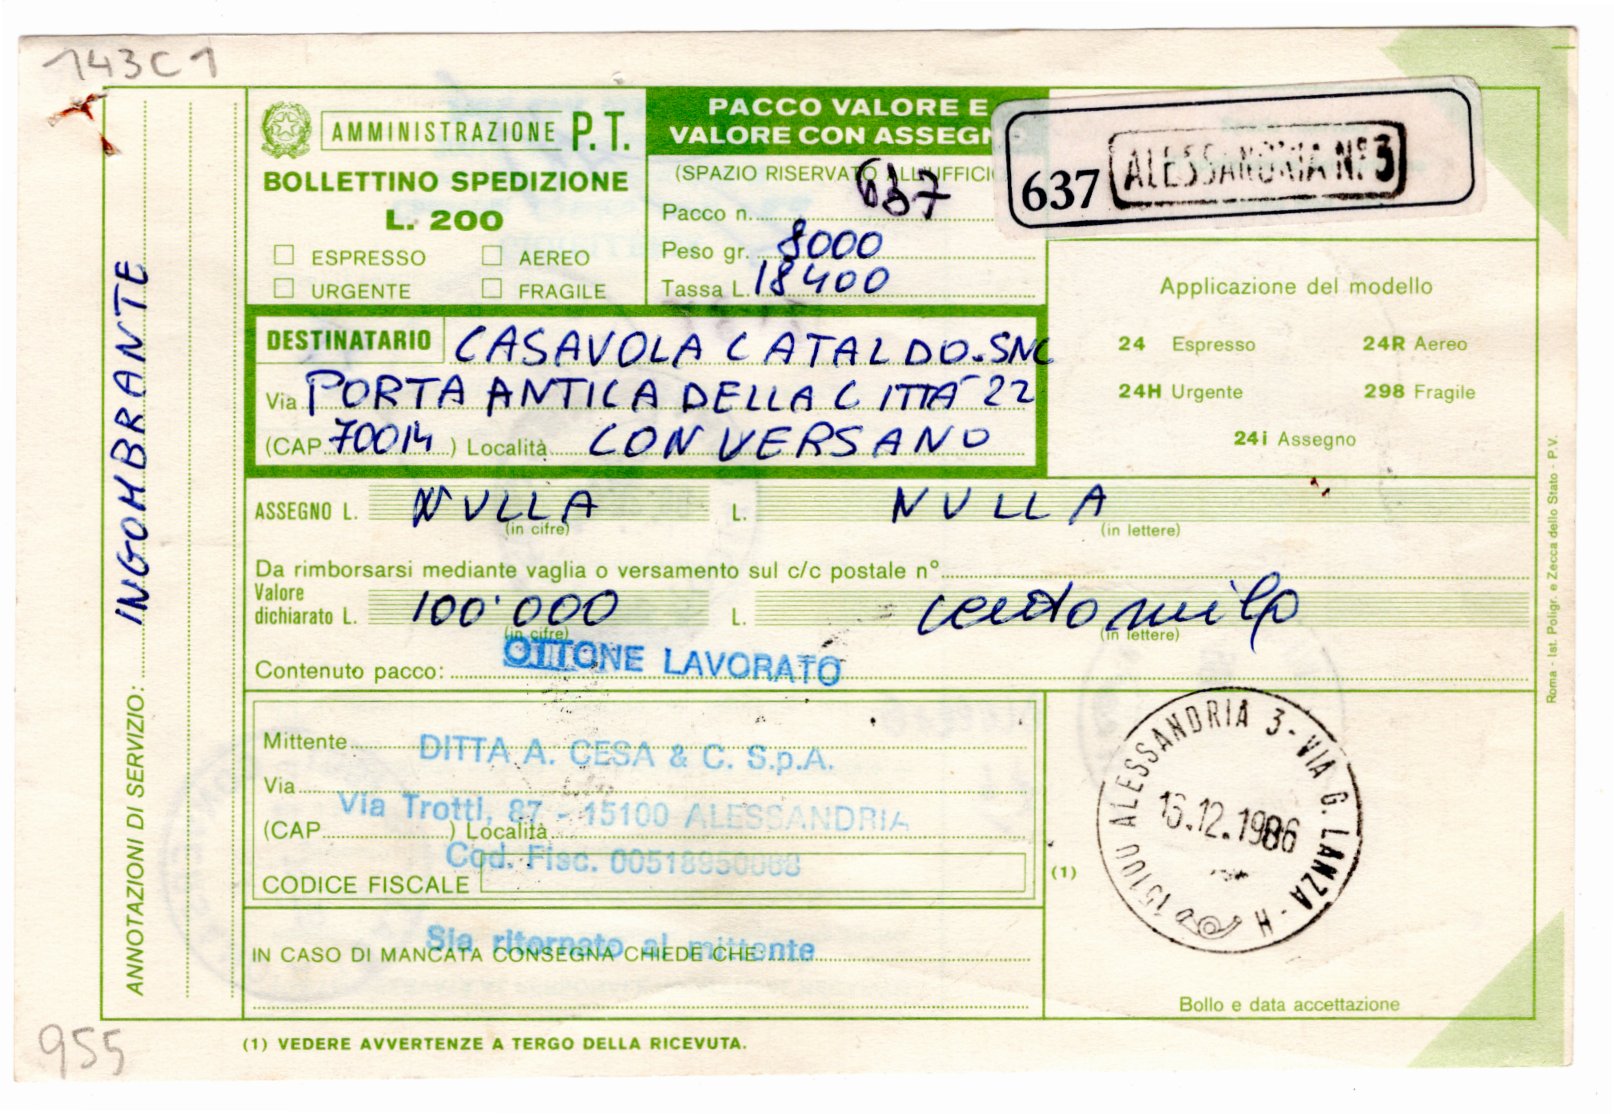 143C1
AMMINISTRAZIONE P.T.
BOLLETTINO SPEDIZIONE
L. 200
ESPRESSO AEREO
URGENTE FRAGILE
PACCO VALORE E
VALORE CON ASSEGN
(SPAZIO RISERVATO ALL'UFFICI
Pacco n. 637
Peso gr. 8000
Tassa L. 18400
637 ALESSANDRIA N. 3
Applicazione del modello
24 Espresso 24R Aereo
24H Urgente 298 Fragile
24i Assegno
DESTINATARIO CASAVOLA CATALDO.SNC
Via PORTA ANTICA DELLA CITTÀ 22
(CAP 70014) Località CONVERSANO
ASSEGNO L. NULLA L. NULLA
(in cifre) (in lettere)
Da rimborsarsi mediante vaglia o versamento sul c/c postale n°
Valore
dichiarato L. 100'000 L. centomila
(in cifre) (in lettere)
Contenuto pacco: OTTONE LAVORATO
Mittente DITTA A. CESA & C. S.p.A.
Via
Via Trotti, 87 - 15100 ALESSANDRIA
(CAP ) Località
Cod. Fisc.
CODICE FISCALE
Sia ritornato al mittente
IN CASO DI MANCATA CONSEGNA CHIEDE CHE:
(1)
15100 ALESSANDRIA 3 - VIA G. LANZA - H
12.1986
Bollo e data accettazione
(1) VEDERE AVVERTENZE A TERGO DELLA RICEVUTA.
ANNOTAZIONI DI SERVIZIO: INGOMBRANTE
Roma - Ist. Poligr. e Zecca dello Stato - P.V.
955